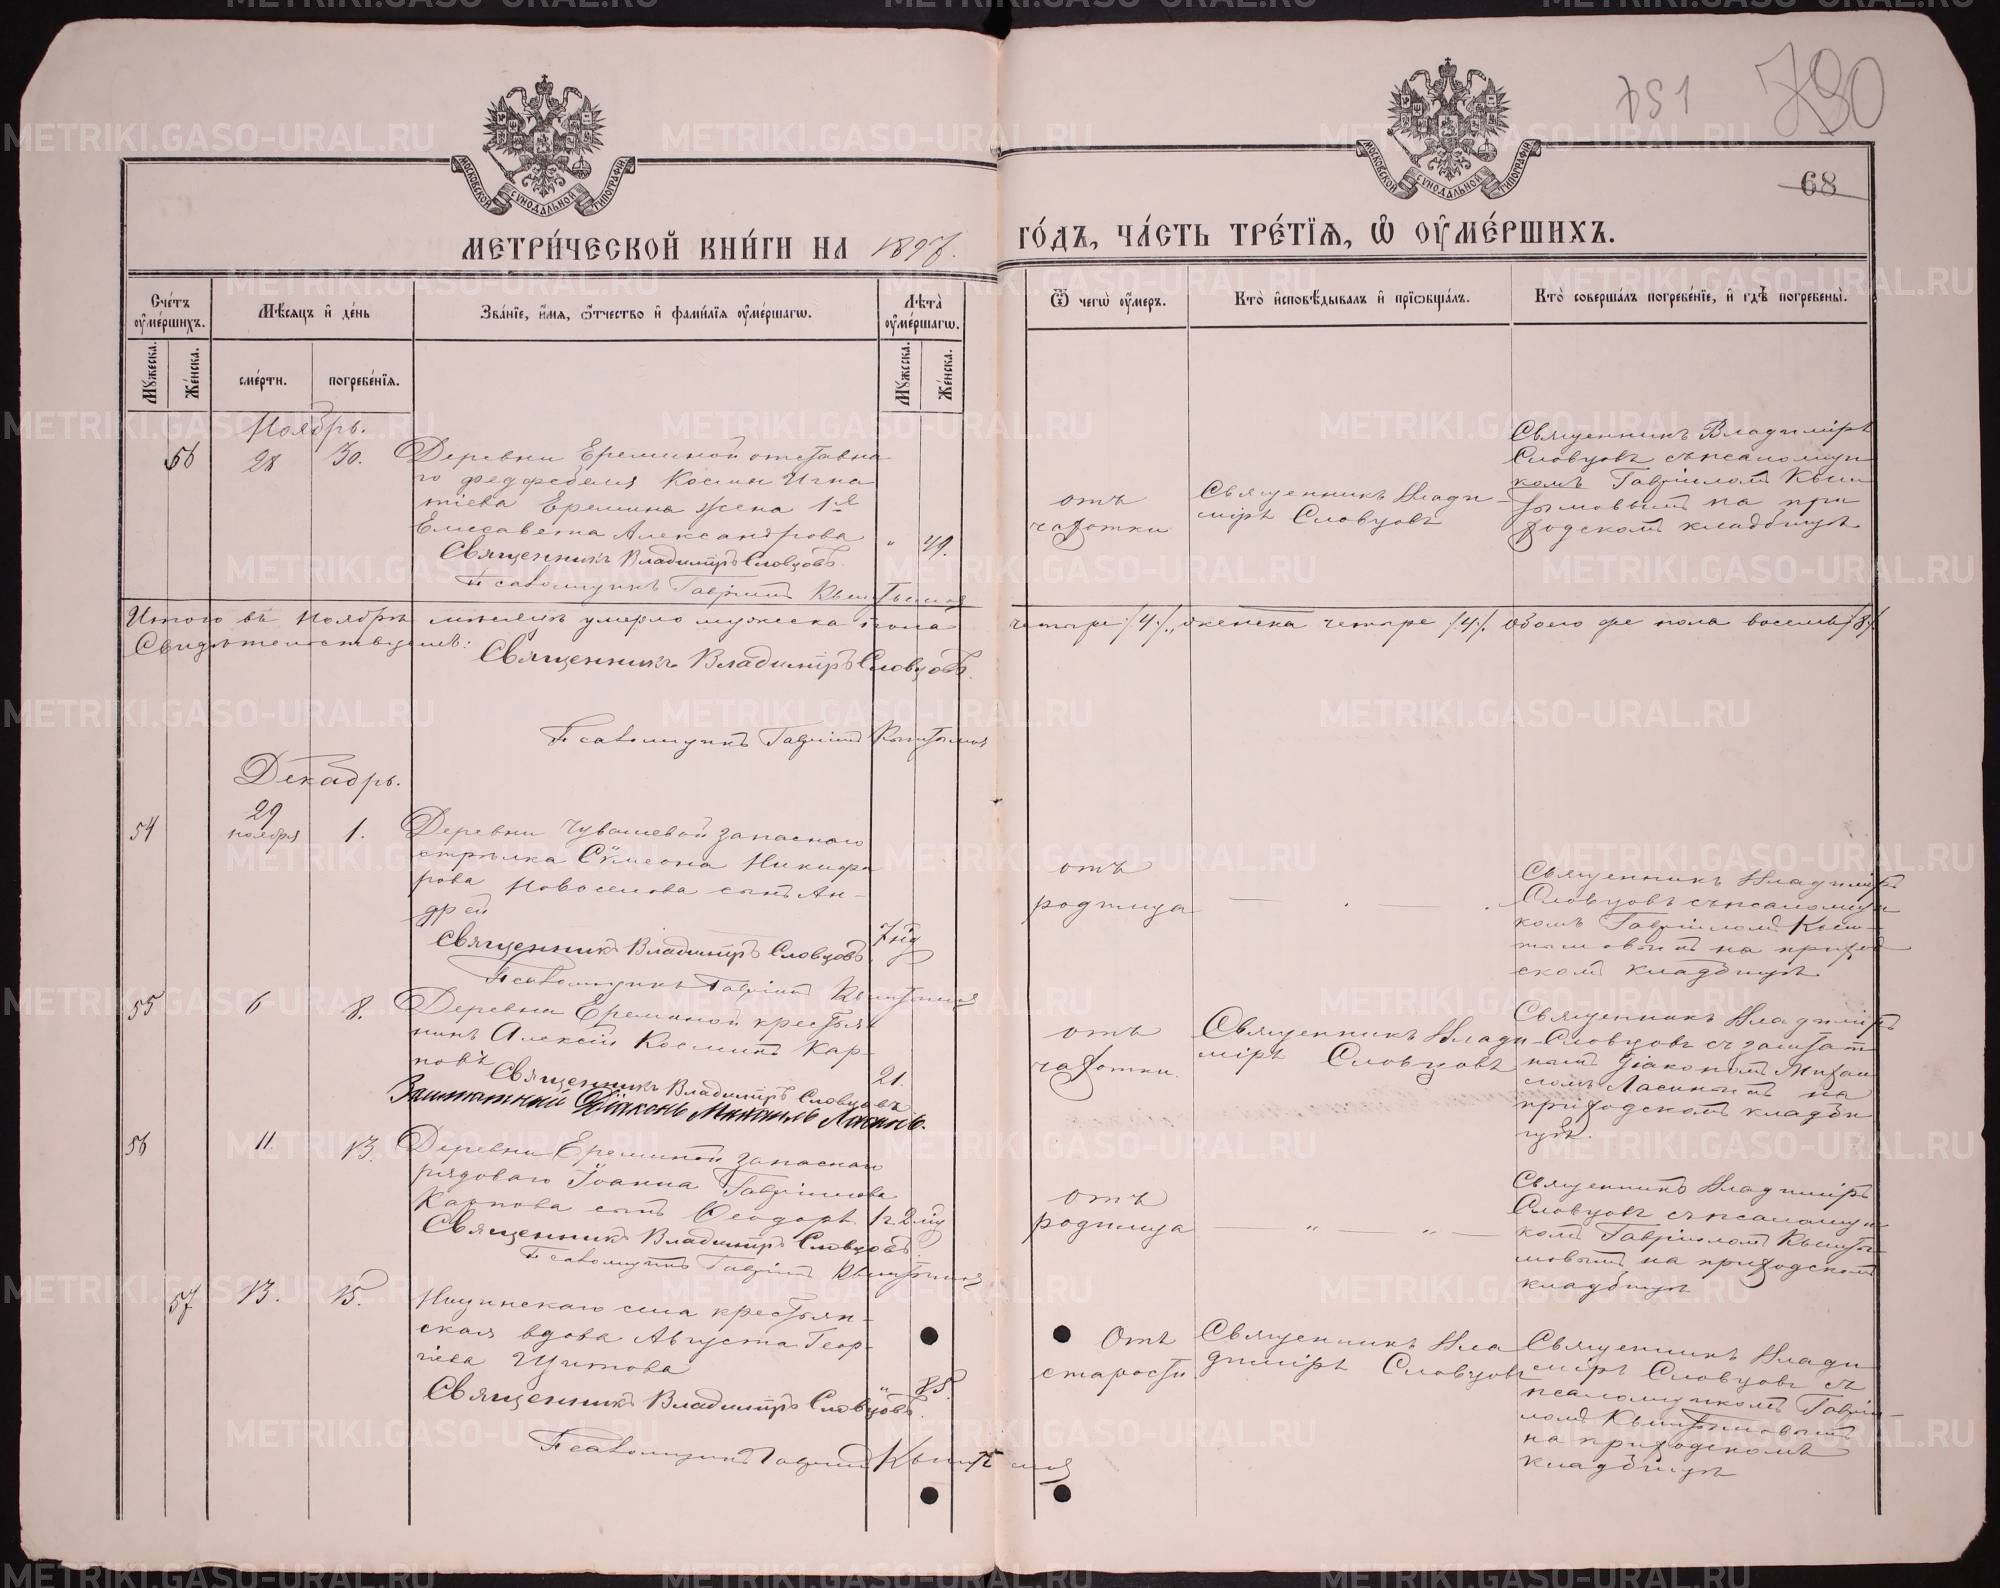 751 790
68
МОСКОВСКОЙ СУНОДАЛЬНОЙ ТИПОГРАФIИ
МОСКОВСКОЙ СУНОДАЛЬНОЙ ТИПОГРАФIИ
МЕТРИ́ЧЕСКОЙ КНИ́ГИ НА 1897. ГО́ДЪ, ЧА́СТЬ ТРЕ́ТІѦ, Ѡ҆ ОУ҆МЕ́РШИХЪ.
Сче́тъ оу҆ме́ршихъ.
Мꙋ́жеска.
Же́нска.
Мѣ́сѧцъ и҆ де́нь
сме́рти.
погребе́нїѧ.
Зва́нїе, и҆́мѧ, ѻ҆́тчество и҆ фами́лїѧ оу҆ме́ршагѡ.
Лѣ́та оу҆ме́ршагѡ.
Мꙋ́жеска.
Же́нска.
Ѿ чегѡ̀ оу҆́меръ.
Кто̀ и҆сповѣ́дывалъ и҆ прїѡбща́лъ.
Кто̀ соверша́лъ погребе́нїе, и҆ гдѣ̀ погребены̀.
Ноябрь.
56 28 30.
Деревни Ереминой отставна
го федфебеля Космы Игна
тіева Еремина жена 1-е
Елисавета Александрова
" 49.
Священникъ Владиміръ Словцовъ.
Псаломщикъ Гавріилъ Кыштымов
отъ
чахотки
Священникъ Влади-
міръ Словцовъ
Священникъ Владиміръ
Словцовъ съ псаломщи
комъ Гавріиломъ Кыш
тымовымъ на при
ходскомъ кладбищѣ
Итого въ Ноябрѣ мѣсяцѣ умерло мужеска пола четыре /4/, женска четыре /4/. Обоего же пола восемь /8/.
Свидѣтельствуемъ:
Священникъ Владиміръ Словцовъ.
Псаломщикъ Гавріилъ Кыштымов
Декабрь.
54 29 ноября 1.
Деревни Чувашевой запаснаго
стрѣлка Сѵмеона Никифо
рова Новоселова сынъ Ан-
дрей
7 нд
Священникъ Владиміръ Словцовъ.
Псаломщикъ Гавріилъ Кыштымов
отъ
родимца
Священникъ Владиміръ
Словцовъ съ псаломщи
комъ Гавріиломъ Кыш-
тымовымъ на приход
скомъ кладбищѣ
55 6 8.
Деревни Ереминой крестья
нинъ Алексій Косминъ Кар-
повъ
21.
Священникъ Владиміръ Словцовъ
Заштатный Діаконъ Михаилъ Ласинъ.
отъ
чахотки.
Священникъ Влади-
міръ Словцовъ
Священникъ Владиміръ
Словцовъ съ заштат
нымъ діакономъ Михаи
ломъ Ласинымъ на
приходскомъ кладби
щѣ.
56 11. 13.
Деревни Ереминой запаснаго
рядоваго Іоанна Гавріилова
Карпова сынъ Ѳеодоръ
1 г 2 мц
Священникъ Владиміръ Словцовъ.
Псаломщикъ Гавріилъ Кыштымов
отъ
родимца
Священникъ Владиміръ
Словцовъ съ псаломщи
комъ Гавріиломъ Кышты
мовымъ на приходскомъ
кладбищѣ
57 13. 15.
Ницинскаго села крестьян-
ская вдова Августа Геор-
гіева Щитова
" 85.
Священникъ Владиміръ Словцовъ.
Псаломщикъ Гавріилъ Кыштымов
Отъ
старости.
Священникъ Вла
диміръ Словцовъ
Священникъ Влади
міръ Словцовъ съ
псаломщикомъ Гаврiи-
ломъ Кыштымовымъ
на приходскомъ
кладбищѣ
METRIKI.GASO-URAL.RU